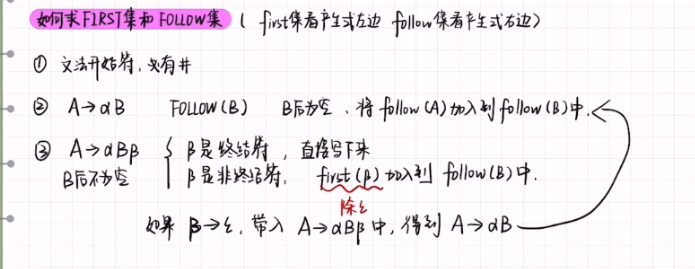 如何求FIRST集和FOLLOW集 ( first集看产生式左边 follow集看产生式右边)
① 文法开始符,必有井
② A→αB FOLLOW(B) B后为空,将follow(A)加入到follow(B)中.
③ A→αBβ { β是终结符,直接写下来
B后不为空 β是非终结符, first(β)加入到 follow(B)中.
除ε
如果 β→ε, 带入 A→αBβ中, 得到 A→αB